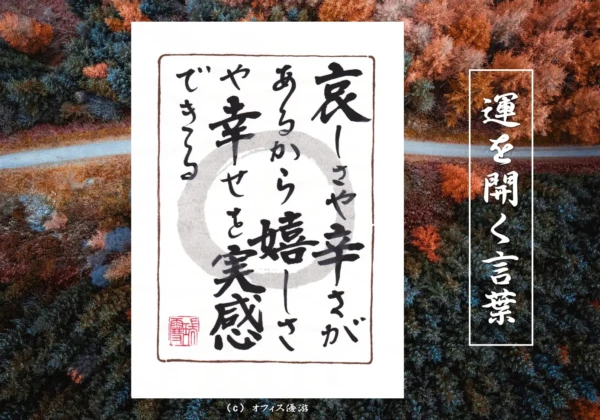 運を開く言葉
哀しさや辛さが
あるから嬉しさ
や幸せを実感
できる
(C) オフィス優游